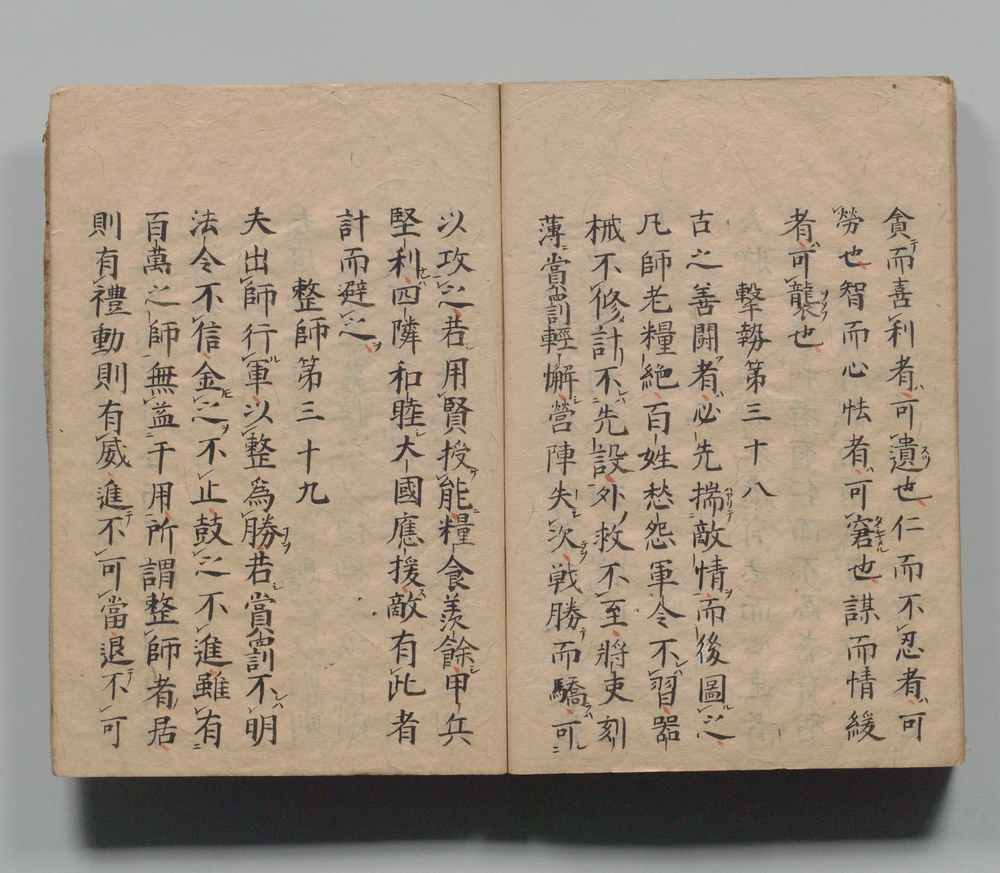 貪而喜利者可遺也仁而不忍者可
勞也智而心怯者可窘也謀而情緩
者可襲也
擊勢第三十八
古之善闘者必先揣敵情而後圖之
凡師老糧絶百姓愁怨軍令不習器
械不修計不先設外救不至將吏刻
薄賞罰輕懈營陣失次戦勝而驕可
以攻之若用賢授能糧食羨餘甲兵
堅利四隣和睦大國應援敵有此者
計而避之
整師第三十九
夫出師行軍以整爲勝若賞罰不明
法令不信金之不止鼓之不進雖有
百萬之師無益于用所謂整師者居
則有禮動則有威進不可當退不可